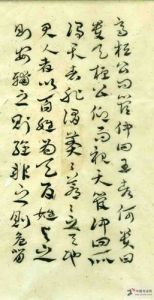 齊桓公问管仲曰王者何貴曰
貴天桓公仰而視天管仲曰所
謂天者非謂蒼蒼莽莽之天也
君人者以百姓為天百姓與之
則安輔之則強非之則危背